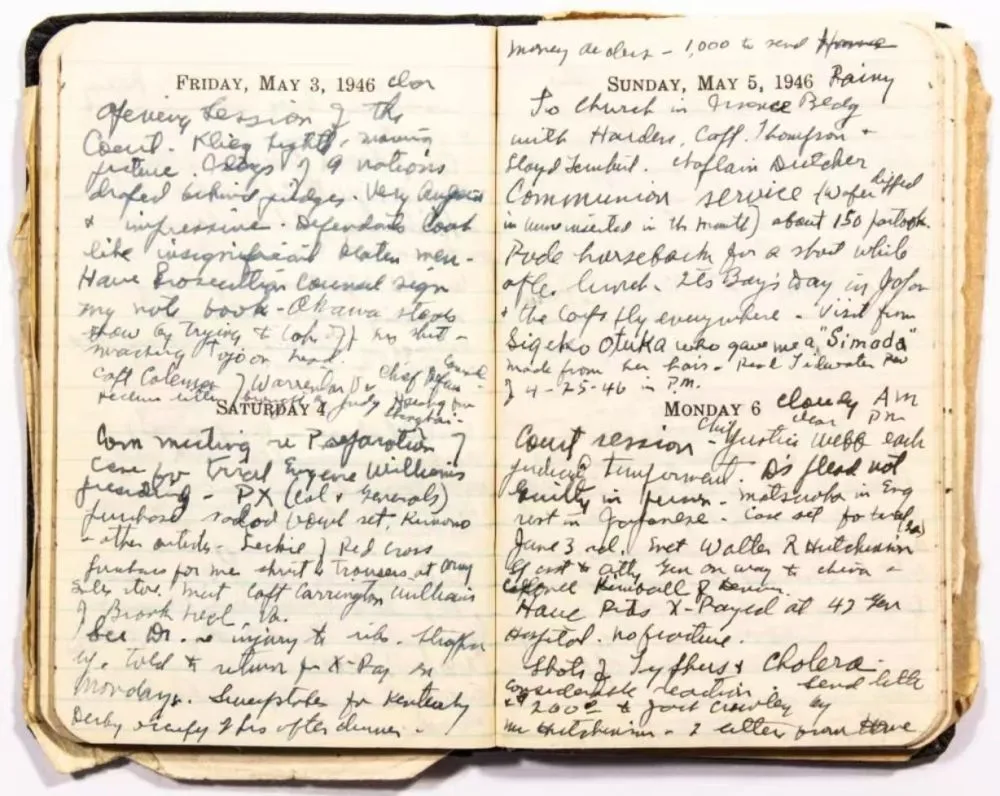 FRIDAY, MAY 3, 1946 clear
Opening Session of the
Court. Klieg lights, moving
picture. Flags of 9 nations
draped behind judges. Very August
& impressive. Defendants look
like insignificant beaten men.
Have Prosecution Counsel sign
my note book - Okawa steals
show by trying to take off his shirt -
smacking Tojo on head.
Capt Coleman Chief Defense Counsel
SATURDAY 4
Com meeting re Preparation of
Case for trial Eugene Williams
presiding - PX (Col & Generals)
purchase salad bowl set, Kimono
& other articles - Leckie of Red Cross
purchases for me shirt & trousers at Army
Sales store. Meet Capt Carrington Williams
of Brook Neal, Va.
See Dr. re injury to ribs. Strapped
up. Told to return for X-Ray on
Monday. Sweepstakes for Kentucky
Derby after dinner.
Money dealers - 1,000 to send Home
SUNDAY, MAY 5, 1946 Rainy
To Church in Finance Bldg
with Harders, Capt. Thompson &
Lloyd Chaplain Dutcher
Communion service (wafer dipped
in wine inserted in the mouth) about 150 partook.
Rode horseback for a short while
after lunch. Its Boy's Day in Japan
& the Carps fly everywhere - Visit from
Sigeko Otuka who gave me a "Simada"
made from her hair - Read Tidewater Rev
of 4-25-46 in P.M.
MONDAY 6 cloudy AM
clear PM
Court session - Chief Justice Webb each
judicial temperment. D's plead not
guilty in person - Matsuoka in Eng
rest in Japanese - Case set for trial
June 3rd. Met Walter R Hutchinson
asst to Atty Gen on way to China -
Colonel Kimball of
Have Ribs X-Rayed at 42 Gen
Hospital. No fracture.
Shots of Typhus & Cholera -
considerable reaction. Send letter
& 200 to Jack Crowley by
Mr Hutchinson - 2 letters from Home